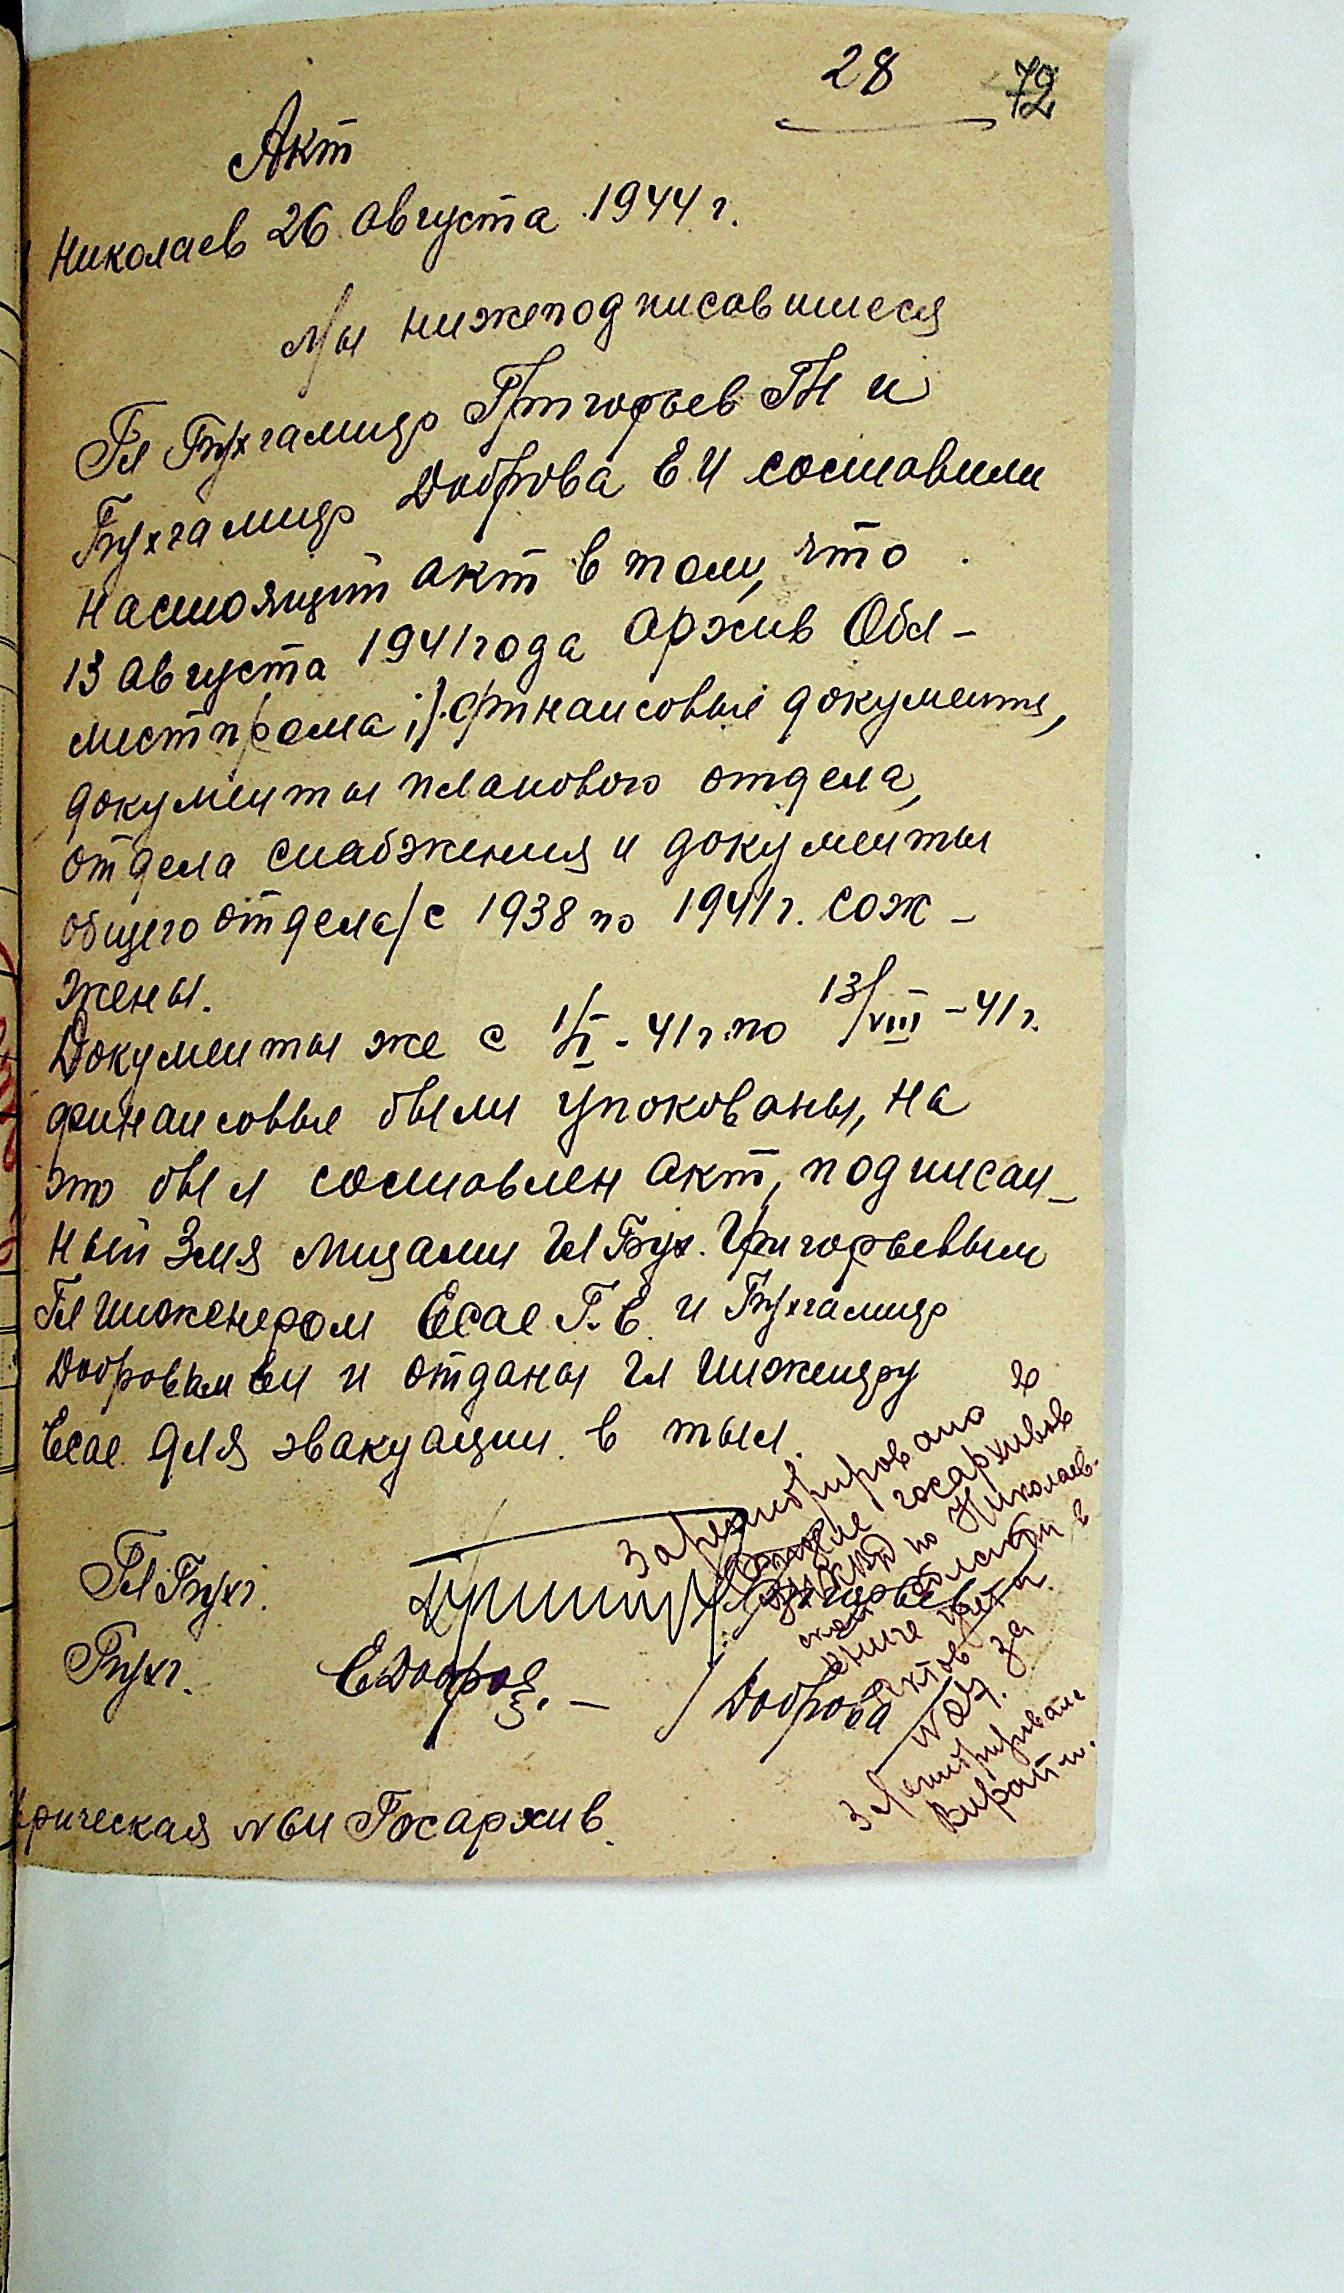 28 72
Акт
Николаев 26 августа 1944 г.
Мы нижеподписавшиеся
Гл Бухгалтер Григорьев ГН и
Бухгалтер Доброва Е И составили
настоящий акт в том, что
13 августа 1941 года архив Обл-
местпрома, финансовые документы,
документы планового отдела,
отдела снабжения и документы
общего отдела/с 1938 по 1941 г. сож-
жены.
Документы же с 1/I - 41 г. по 13/VIII - 41 г.
финансовые были упокованы, на
это был составлен акт, подписан-
ный 3мя лицами Гл Бух. Григорьевым
Гл инженером Есае Г. Е. и Бухгалтер
Добровым ЕИ и отданы гл инженеру
Есае для эвакуации в тыл.
Зарегистрировано в
отделе госархивов
УНКВД по Николаев-
ской области в
книге учета
актов
за
Зарегистрировала
Гл Бухг. Григорьев
Бухг. ЕДоброва. - /Доброва/
рическая №64 Госархив.